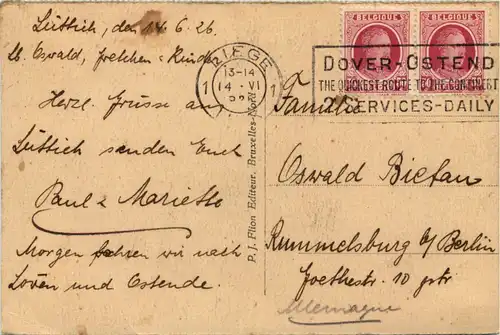 Lüttich, den 14.6.26
Lb. Oswald, Fretchen + Kinder
Herzl. Grüsse aus
Lüttich senden Euch
Paul & Mariette
Morgen fahren wir nach
Löven und Ostende.
P. J. Flion Editeur, Bruxelles-Nord
LIEGE
1 13-14 1
14-VI
BELGIQUE BELGIQUE
DOVER-OSTEND
THE QUICKEST ROUTE TO THE CONTINENT
SERVICES-DAILY
Familie
Oswald Bietau
Rummelsburg b/Berlin
Goethestr. 10 ptr
Allemagne